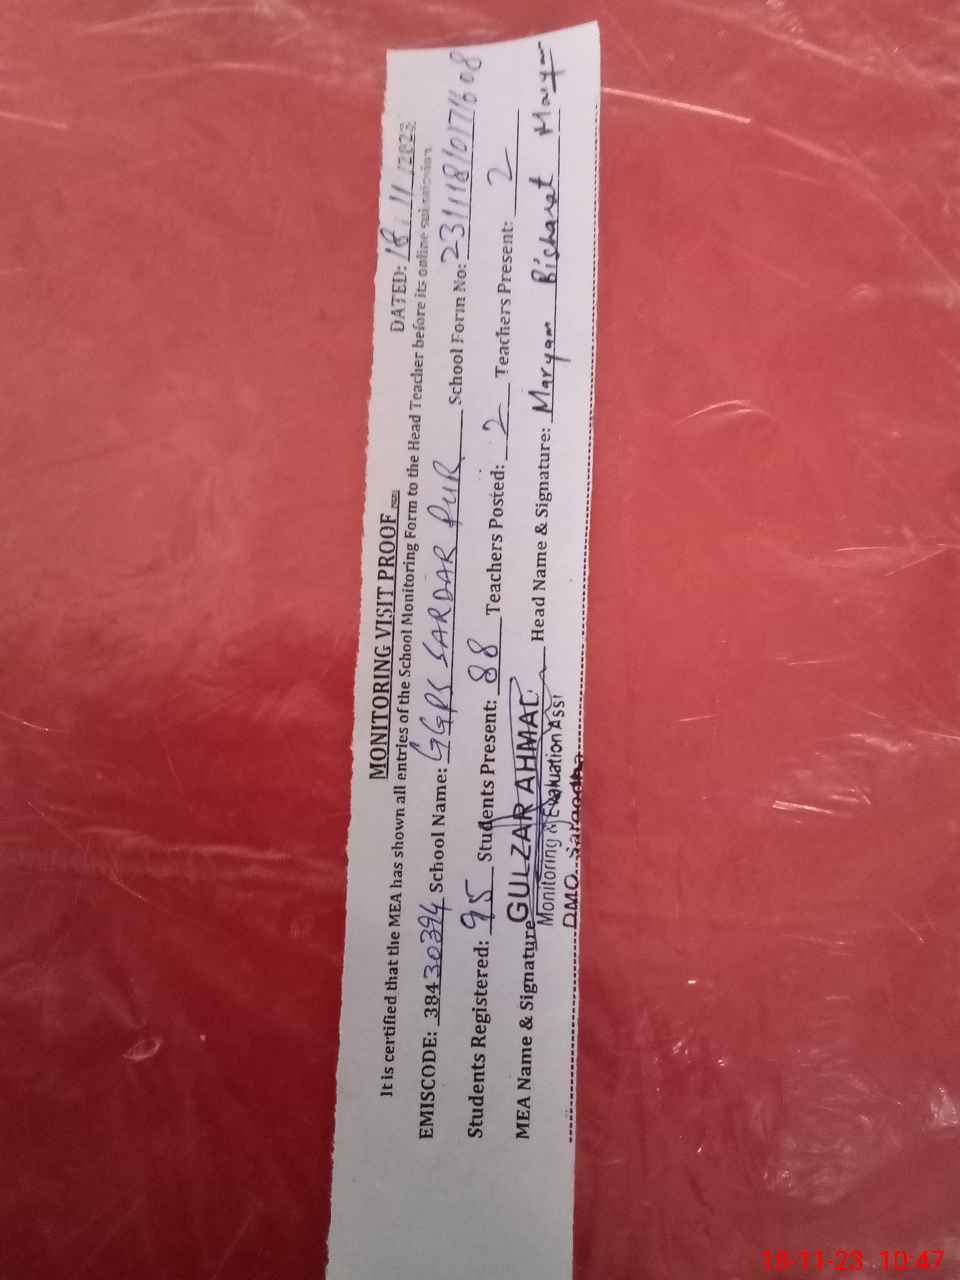 MONITORING VISIT PROOF
DATED: 18/11/2023
It is certified that the MEA has shown all entries of the School Monitoring Form to the Head Teacher before its online submission
EMISCODE: 38430394 School Name: GGPS SARDAR PUR School Form No: 231118101711608
Students Registered: 95 Students Present: 88 Teachers Posted: 2 Teachers Present: 2
MEA Name & Signature GULZAR AHMAD Head Name & Signature: Maryam Bisharat Maryam
Monitoring & Evaluation Asst
DMO. Sargodha
18-11-23 10:47